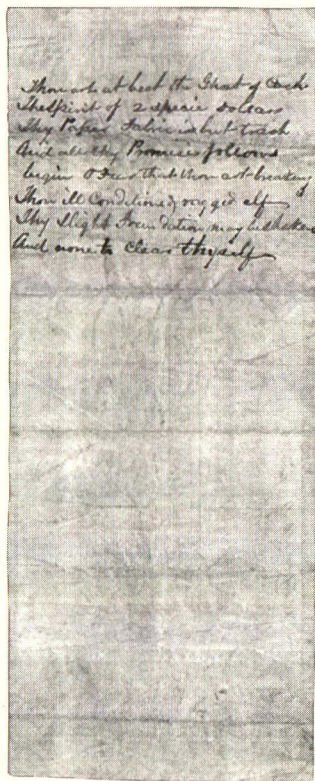 Thou art at best the Ghost of Cash
The Spirit of 2 specie Dollars
Thy Paper Fabric is but trash
And all thy Promise
begin that thou art breaking
Thou ill Conditioned ragged elf
Thy slight Foundation may be shaken
And none to Clear thyself